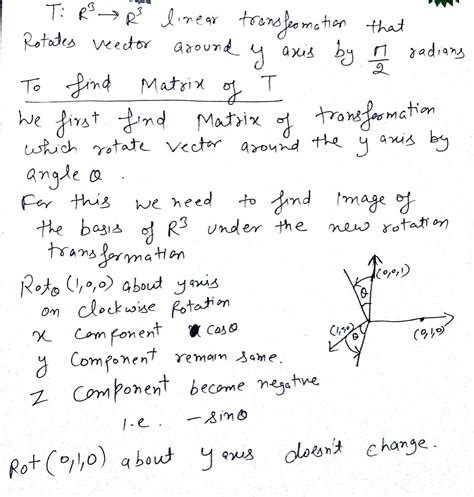 T: R³ → R³ linear transfromation that
Rotates veector around y axis by π/2 radians
To find Matrix of T
We first find Matrix of transfromation
which rotate vector around the y axis by
angle θ.
For this we need to find image of
the basis of R³ under the new rotation
transformation
Rotθ (1,0,0) about y axis
on clockwise Rotation
x component cosθ
y component remain same.
z component become negative
i.e. -sinθ
(0,0,1)
θ
(1,0,0)
θ
(0,1,0)
Rot (0,1,0) about y axis doesn't change.